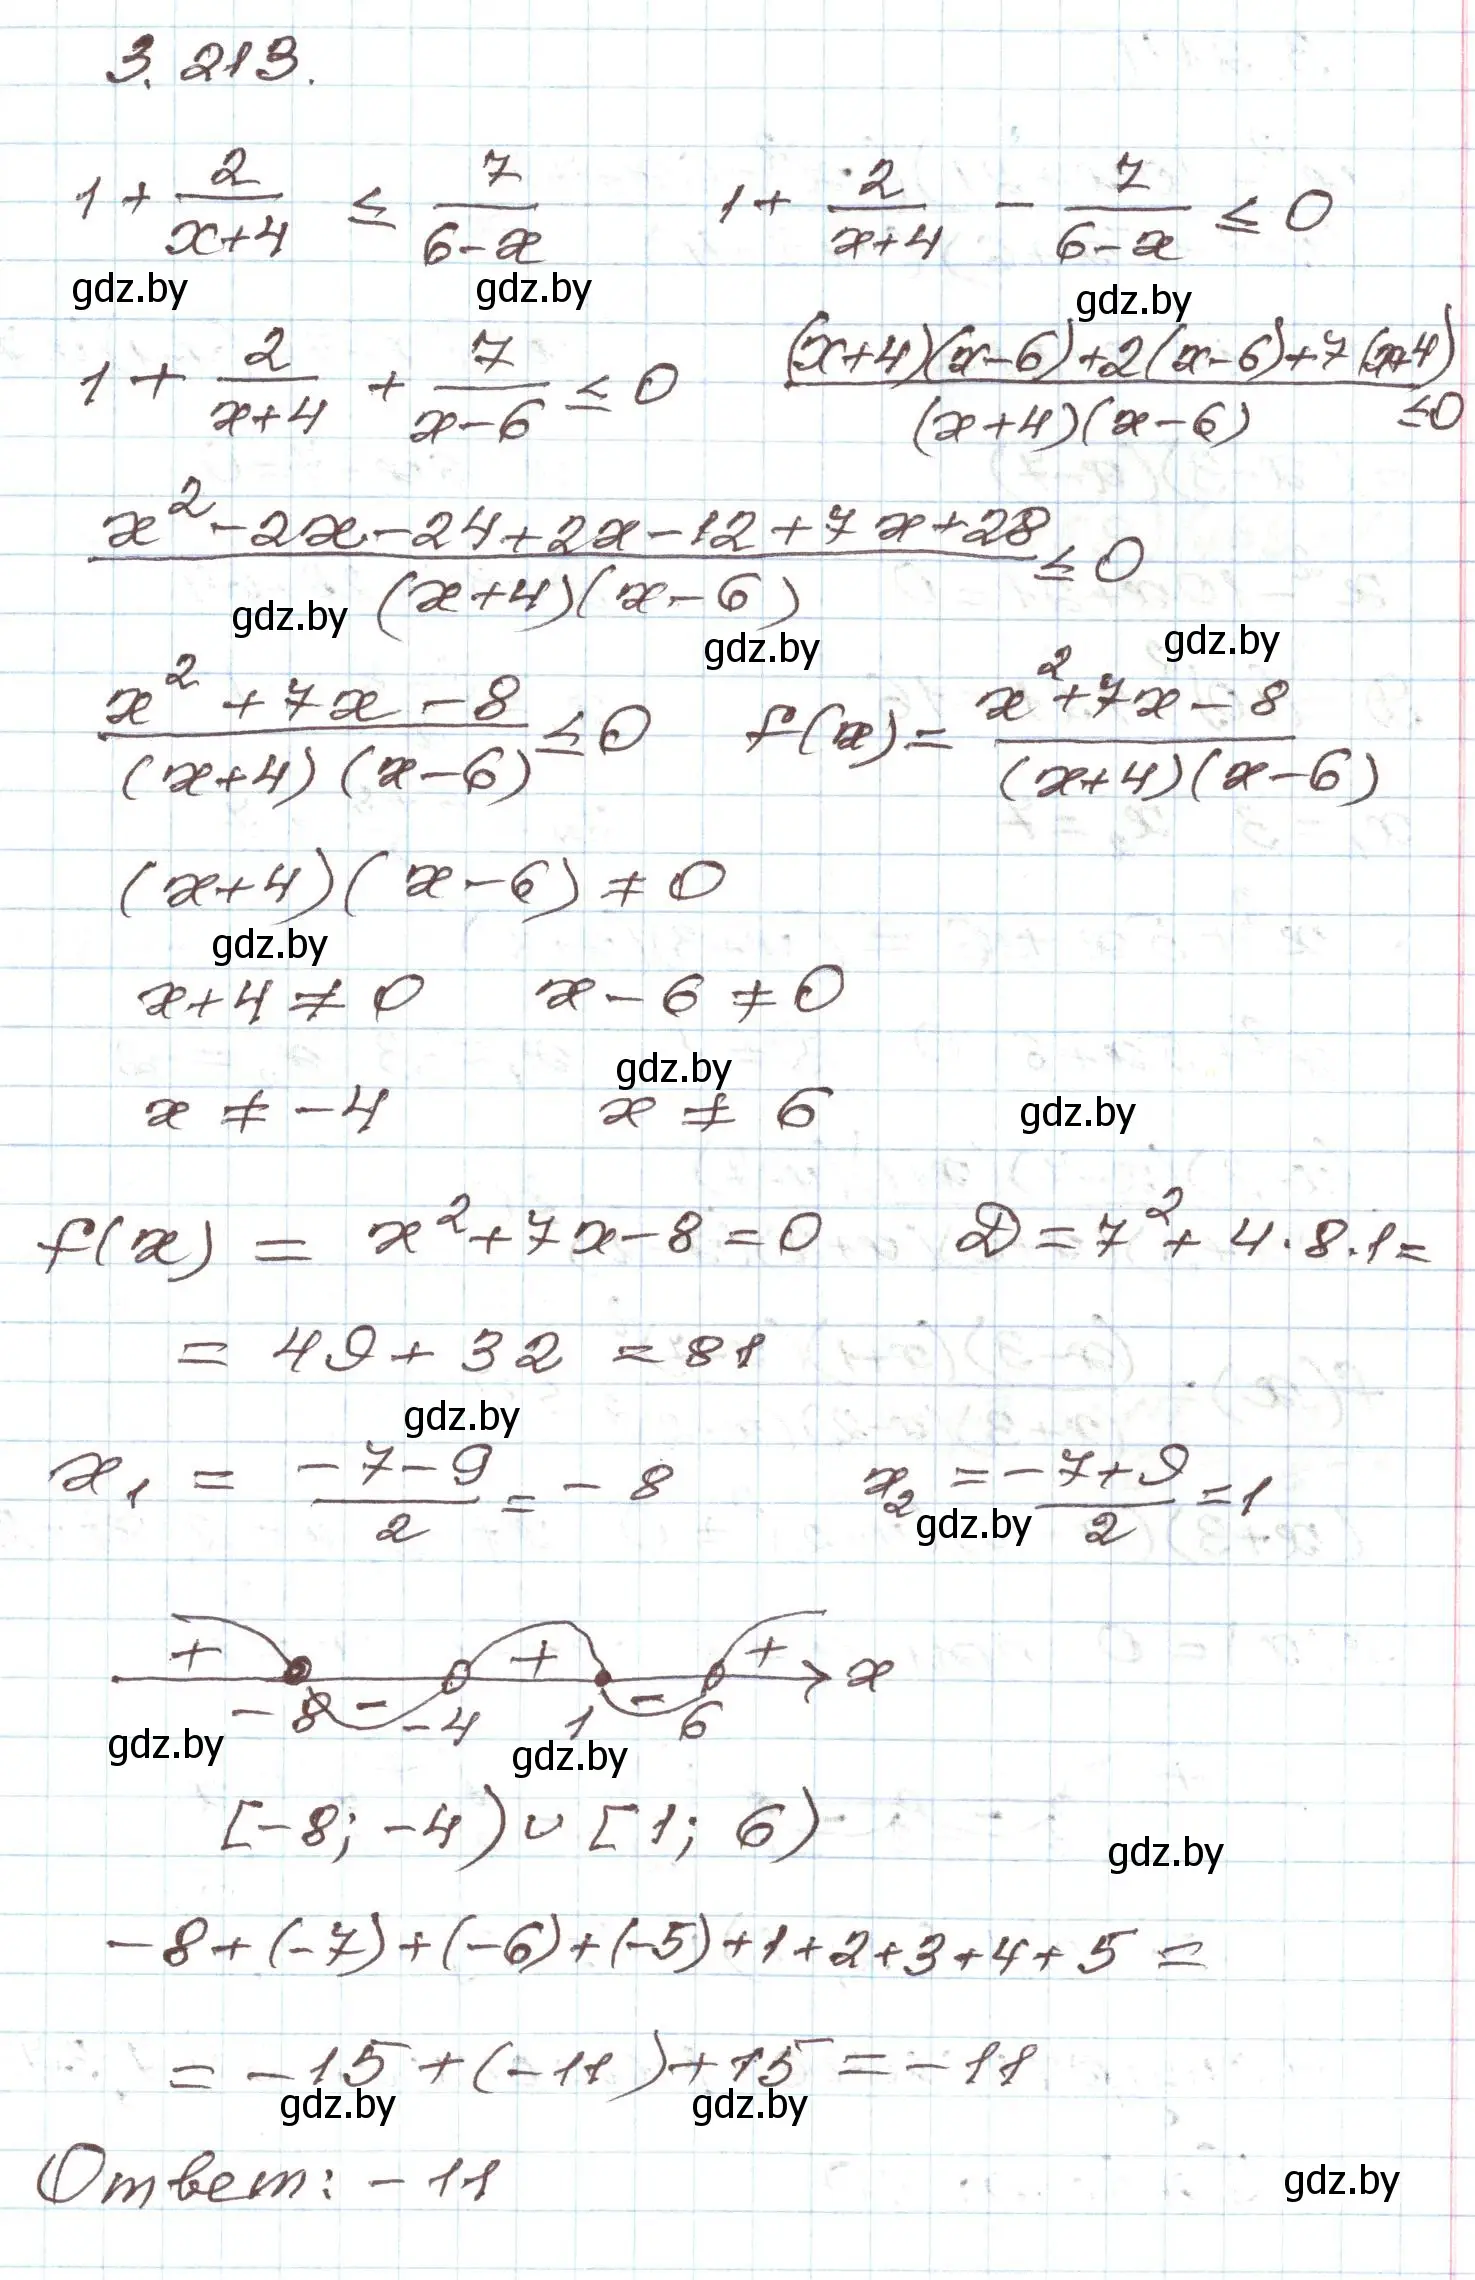 3.213.
1 + 2/(x+4) ≤ 7/(6-x)   1 + 2/(x+4) - 7/(6-x) ≤ 0
gdz.by gdz.by gdz.by
1 + 2/(x+4) + 7/(x-6) ≤ 0   ((x+4)(x-6)+2(x-6)+7(x+4))/((x+4)(x-6)) ≤ 0
(x² - 2x - 24 + 2x - 12 + 7x + 28)/((x+4)(x-6)) ≤ 0
gdz.by gdz.by gdz.by
(x² + 7x - 8)/((x+4)(x-6)) ≤ 0   f(x) = (x² + 7x - 8)/((x+4)(x-6))
(x+4)(x-6) ≠ 0
gdz.by
x+4 ≠ 0   x - 6 ≠ 0
gdz.by
x ≠ -4   x ≠ 6   gdz.by
f(x) = x² + 7x - 8 = 0   D = 7² + 4·8·1 =
= 49 + 32 = 81
gdz.by
x₁ = (-7-9)/2 = -8   x₂ = (-7+9)/2 = 1
gdz.by
+ - + - + x
-8 -4 1 6
gdz.by gdz.by
[-8; -4) ∪ [1; 6)
gdz.by
-8+(-7)+(-6)+(-5)+1+2+3+4+5 =
= -15+(-11)+15 = -11
gdz.by gdz.by
Ответ: -11
gdz.by